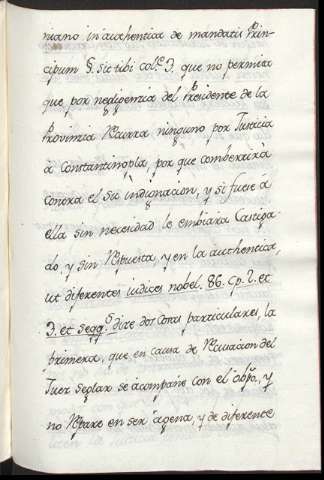 niano in authentica de mandatis Prin-
cipum §. sit tibi col.e 3. que no permita
que por negligenzia del Presidente de la
Provinzia Recurra ninguno por Justicia
à Constantinopla, por que combertirà
contra el su indignacion, y si fuere à
ella sin necesidad le embiara Castiga-
do, y sin Respuesta, y en la authentica,
ut diferentes iudices nobel. 86. cp. 2. et
3. et seqq.s dize dos cosas particulares, la
primera, que en causa de Recusacion del
Juez seglar se acompañe con el obpo, y
no Repare en ser agena, y de diferente